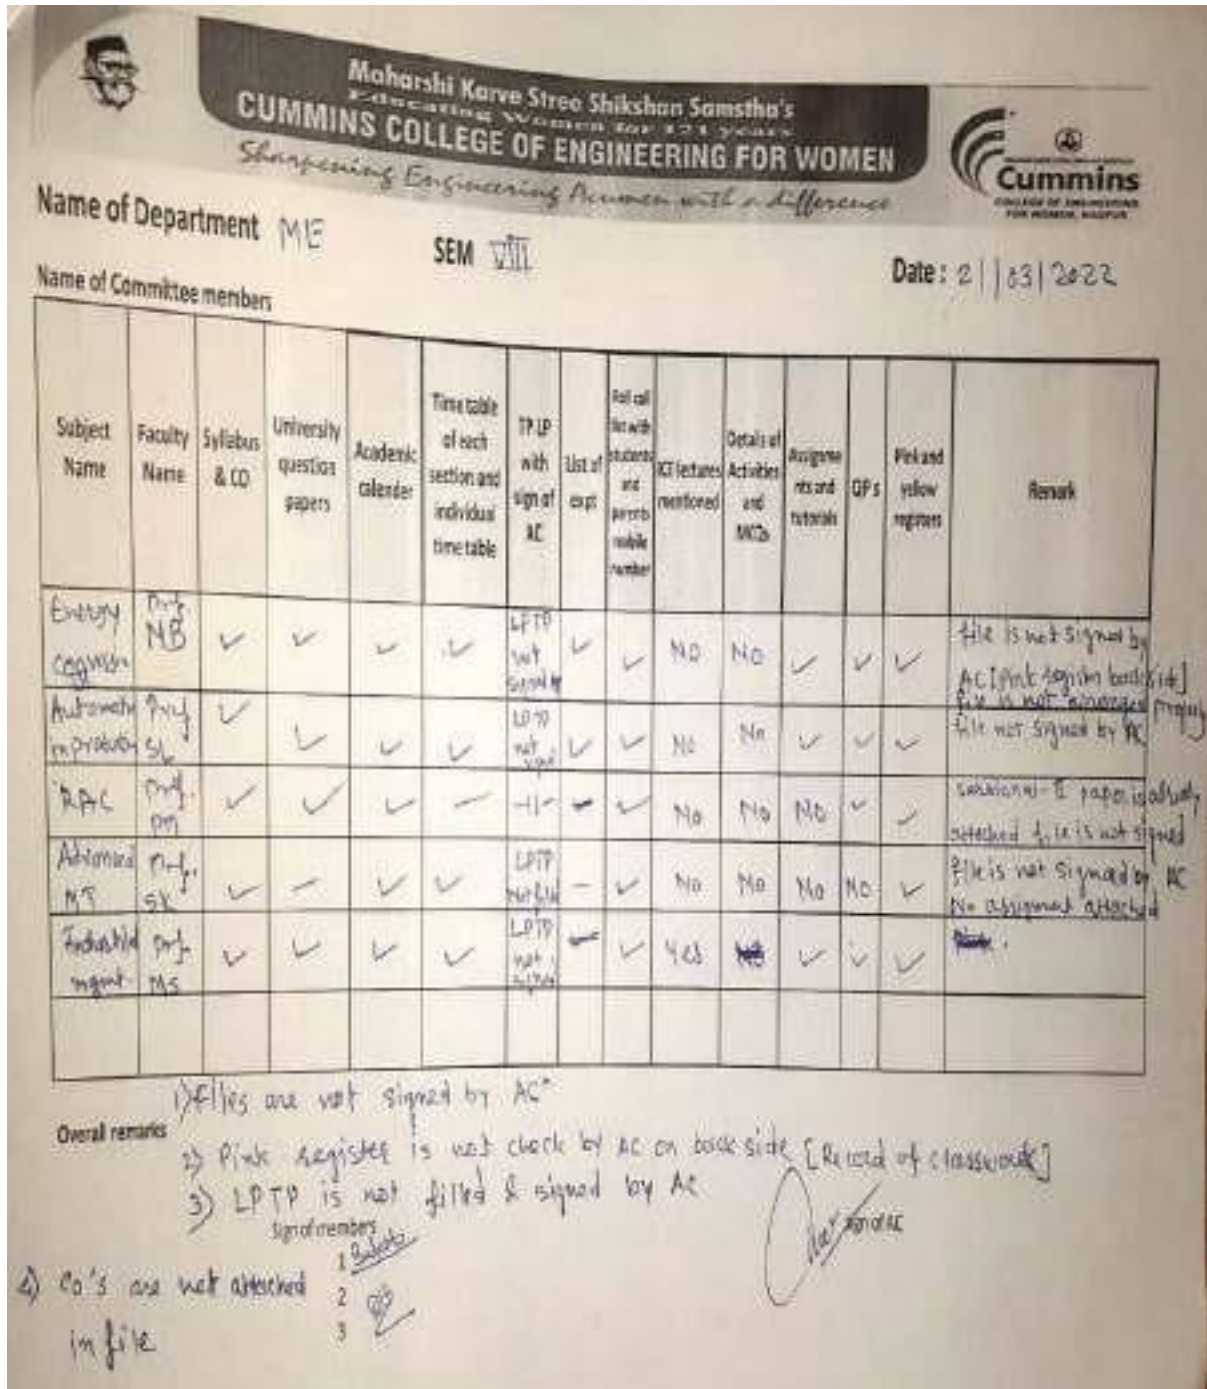 Maharshi Karve Stree Shikshan Samstha's
Educating Women for 121 years
CUMMINS COLLEGE OF ENGINEERING FOR WOMEN
Sharpening Engineering Acumen with a difference
Cummins
COLLEGE OF ENGINEERING
FOR WOMEN, NAGPUR
Name of Department ME
SEM VIII
Date : 21/03/2022
Name of Committee members
Subject Name
Faculty Name
Syllabus & CO
University question papers
Academic calender
Time table of each section and individual time table
TP LP with sign of AC
List of expt
Roll call list with students and parents mobile number
ICT lectures mentioned
Details of Activities and MCQs
Assignments and tutorials
QP s
Pink and yellow registers
Remark
Energy Prof. MB ✓ ✓ ✓ ✓ LPTP not signed by ✓ ✓ NO NO ✓ ✓ ✓ file is not signed by AC [Pink register back side] file is not arranged properly
Prof SL ✓ ✓ ✓ ✓ LPTP not ✓ ✓ No No ✓ ✓ ✓ file not signed by AC
RAC Prof. ✓ ✓ ✓ — -11- ✓ No No NO ✓ ✓ sessional-II paper is already attached file is not signed
Advanced MT Prof. SK ✓ — ✓ ✓ LPTP — ✓ No No No NO ✓ file is not signed by AC No assignment attached
Industrial mgmt. Prof. MS ✓ ✓ ✓ ✓ LPTP not ✓ Yes ✓ ✓ ✓
Overall remarks
1) files are not signed by AC
2) Pink register is not check by AC on back side [Record of classwork]
3) LPTP is not filled & signed by AC
Sign of members
sign of AC
1
4) CO's are not attached
2
3
in file